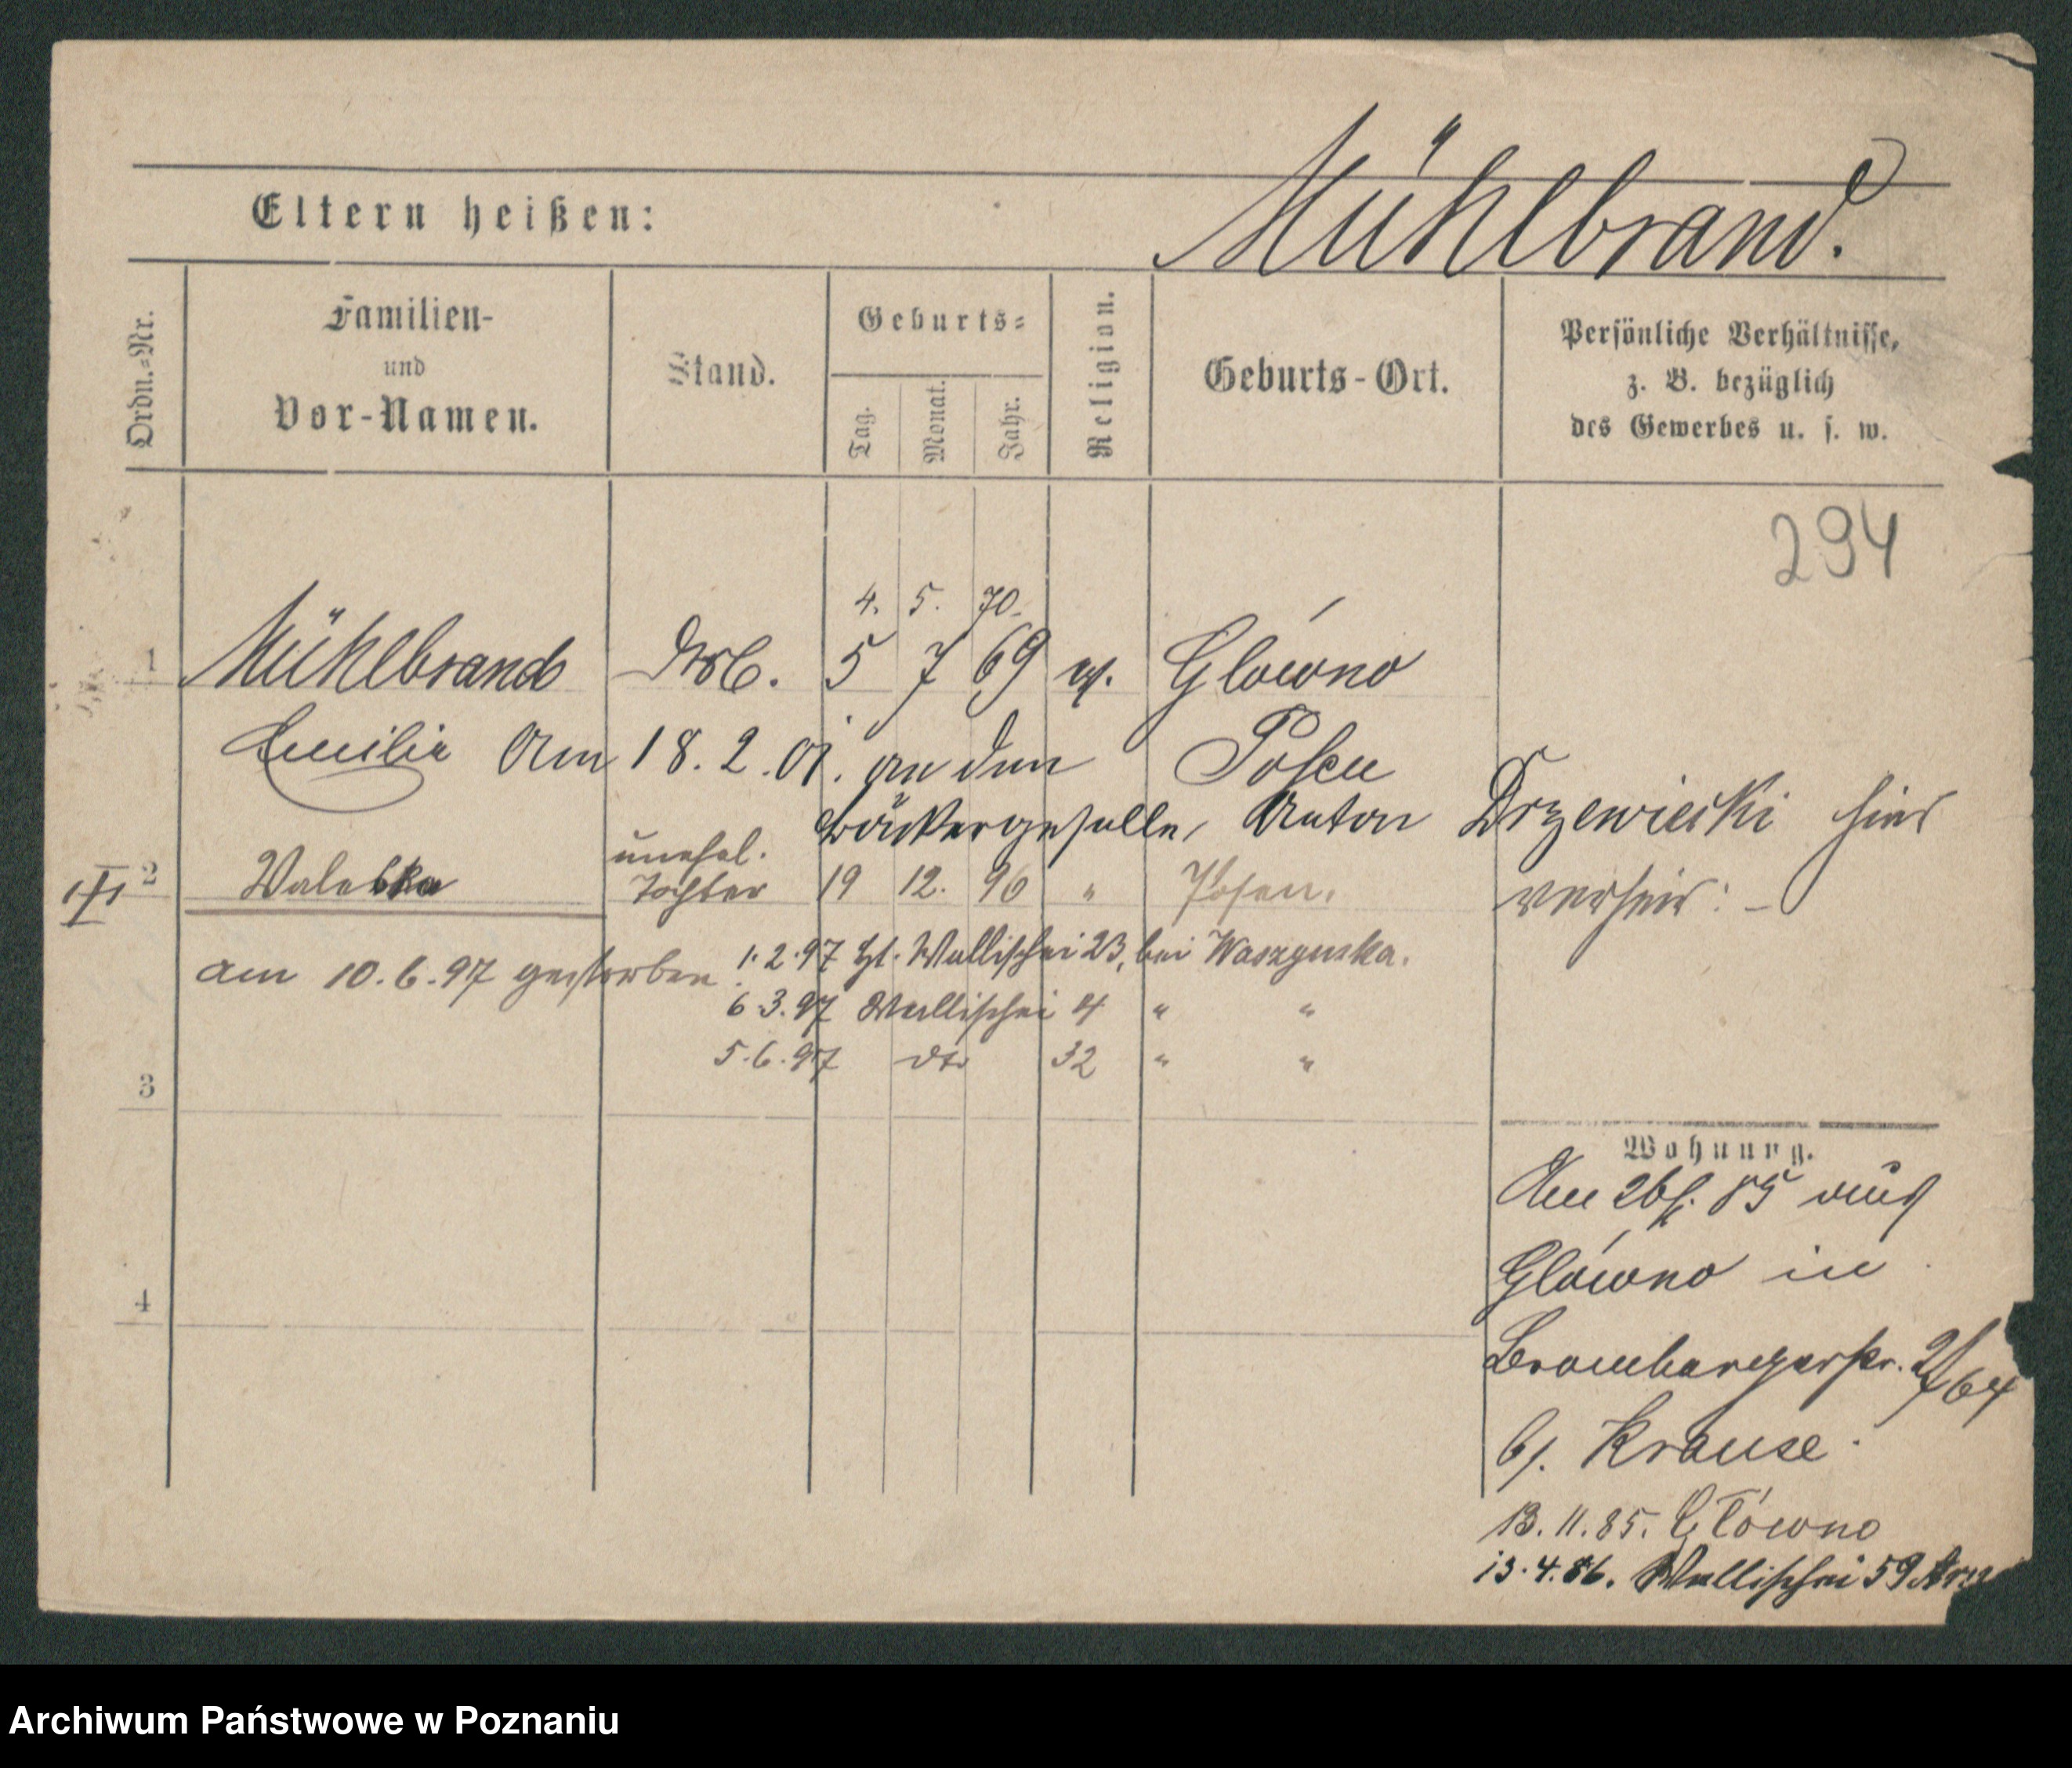 Mühlbrand.
Eltern heißen:
Ordn.-Nr.
Familien-
und
Vor-Namen.
Stand.
Geburts-
Tag.
Monat.
Jahr.
Religion.
Geburts-Ort.
Persönliche Verhältnisse,
z. B. bezüglich
des Gewerbes u. s. w.
294
4. 5. 70.
1 Mühlbrand 5 7 69 Glówno
Emilie Am 18. 2. 01. an den Posen
Bäckergeselle, Anton Drzewiecki hier
verheir:
unehel.
2 Waleska Tochter 19 12. 96 " Posen.
am 10.6.97 gestorben.
1.2.97 Wallischei 23, bei
6.3.97 Wallischei 4 " "
5.6.97 dto 32 " "
3
4
Wohnung.
Am 85 aus
Glówno in
Brombergerstr. 2/64
b/. Krause.
13.11.85. Główno
13.4.86. Wallischei 59
Archiwum Państwowe w Poznaniu